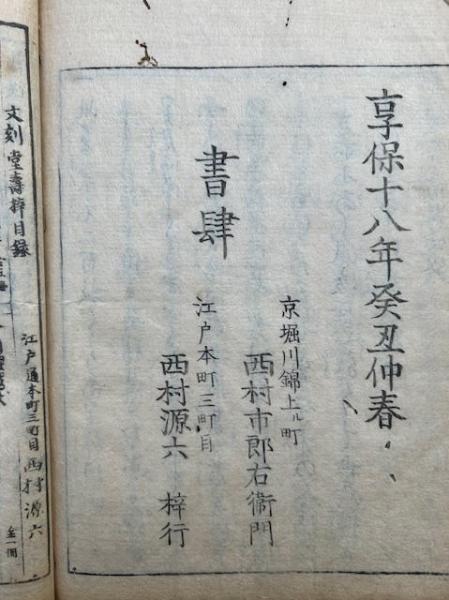 享保十八年癸丑仲春
書肆
京堀川錦上ル町
西村市郎右衛門
江戸本町三町目
西村源六 梓行
文刻堂壽梓目録
江戸通本町三町目 西村源六
全一冊